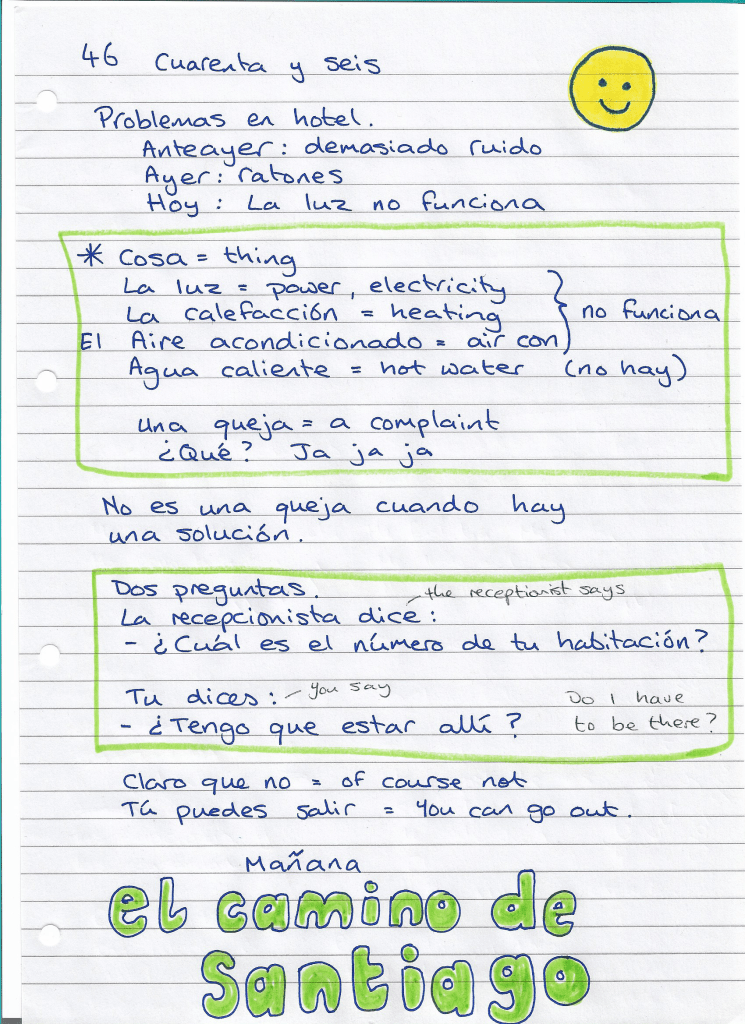 46 Cuarenta y seis
Problemas en hotel.
Anteayer: demasiado ruido
Ayer: ratones
Hoy: La luz no funciona
* Cosa = thing
La luz = power, electricity
La calefacción = heating
no funciona
El Aire acondicionado = air con
Agua caliente = hot water (no hay)
una queja = a complaint
¿Qué? Ja ja ja
No es una queja cuando hay
una solución.
Dos preguntas.
the receptionist says
La recepcionista dice:
- ¿Cuál es el número de tu habitación?
Tu dices: - you say
- ¿Tengo que estar allí?
Do I have
to be there?
Claro que no = of course not
Tú puedes salir = You can go out.
Mañana
el camino de
Santiago